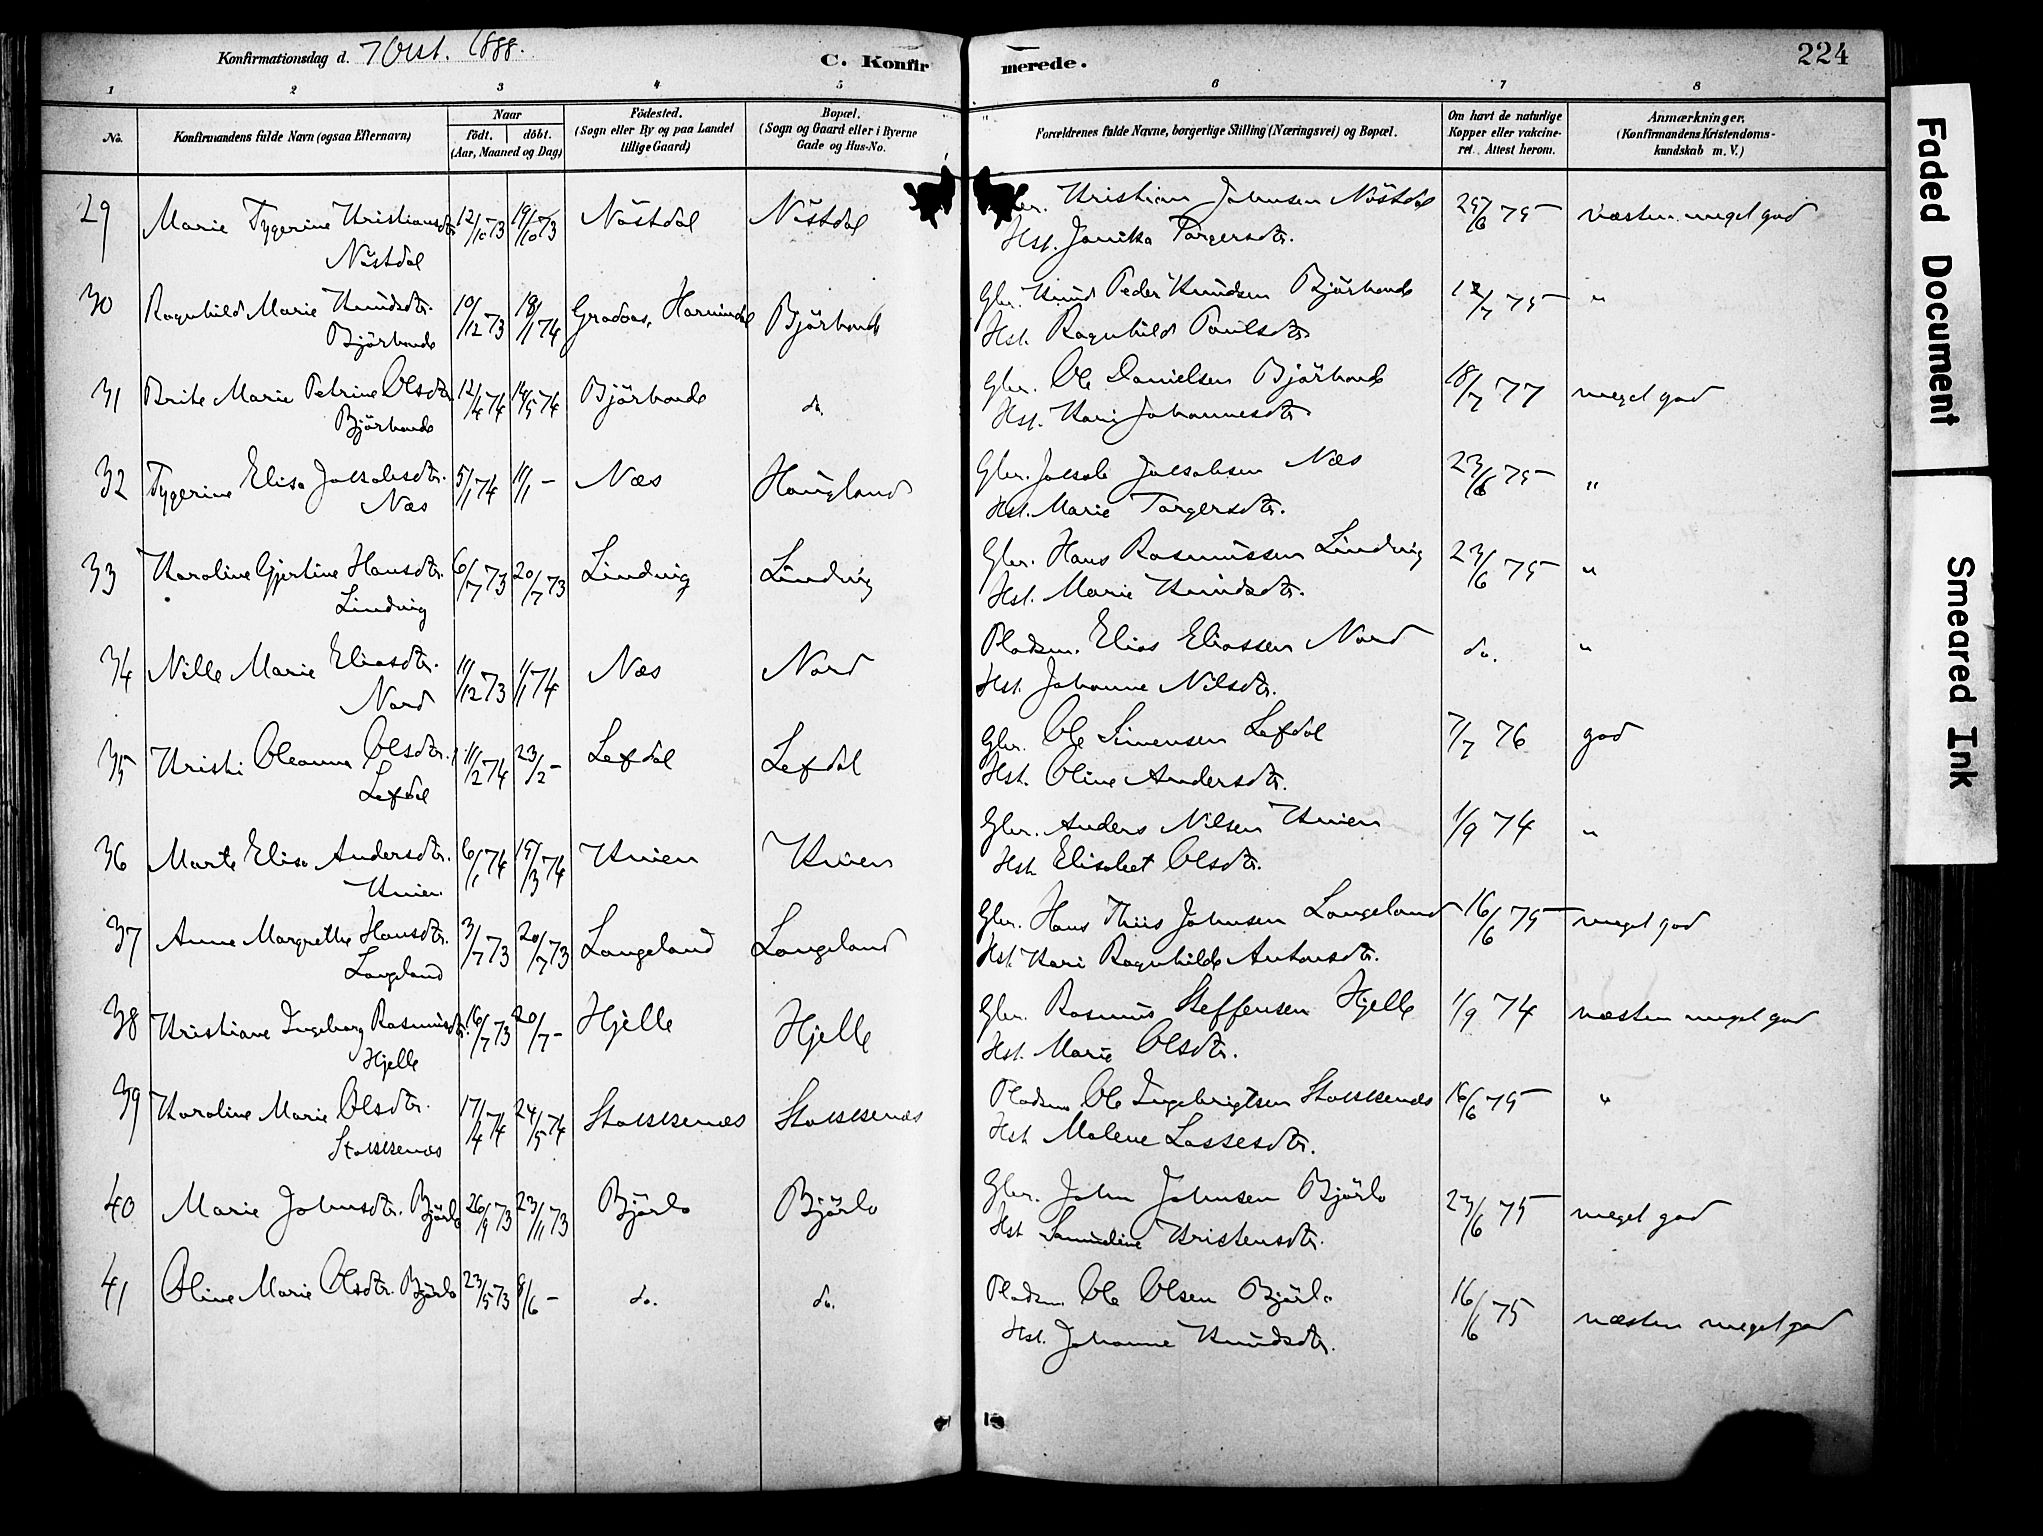 Konfirmationsdag d. 7 Oct. 1888.
C. Konfirmerede.
224
1 2 3 4 5 6 7 8
No.
Konfirmandens fulde Navn (ogsaa Efternavn)
Naar
födt. döbt.
(Aar, Maaned og Dag)
Födested.
(Sogn eller By og paa Landet
tillige Gaard)
Bopæl.
(Sogn og Gaard eller i Byerne
Gade og Hus-No.
Forældrenes fulde Navne, borgerlige Stilling (Næringsvei) og Bopæl.
Om havt de naturlige
Kopper eller vakcine-
ret. Attest herom.
Anmærkninger.
(Konfirmandens Kristendoms-
kundskab m. V.)
29 Marie Tygerine Kristiansdtr. 12/10 73 19/10 73 Nöstdal Nöstdal Gbr. Kristian Johnsen Nöstdal 25/6 75 næsten meget god
Nöstdal Hst. Janika Torgersdtr.
30 Ragnhild Marie Knudsdtr. 10/12 73 18/1 74 Gradaas, Hornindal Björhovde Gbr. Knud Peder Knudsen Björhovde 12/7 75 "
Björhovde Hst. Ragnhild Paulsdtr.
31 Brite Marie Petrine Olsdtr. 12/4 74 14/5 74 Björhovde do. Gbr. Ole Danielsen Björhovde 18/7 77 meget god
Björhovde Hst. Kari Johannesdtr.
32 Tygerine Elisa Jakobsdtr. 5/1 74 11/1 - Næs Haugland Gbr. Jakob Jakobsen Næs 23/6 75 "
Næs Hst. Marie Torgersdtr.
33 Karoline Gjertine Hansdtr. 6/7 73 20/7 73 Lindvig Lindvig Gbr. Hans Rasmussen Lindvig 23/6 75 "
Lindvig Hst. Marie Knudsdtr.
34 Nille Marie Eliasdtr. 11/12 73 1/1 74 Næs Nord Pladsm. Elias Eliassen Nord do. "
Nord Hst. Johanne Nilsdtr.
35 Kristi Oleanna Olsdtr. 11/2 74 23/2 - Lefdal Lefdal Gbr. Ole Simensen Lefdal 7/7 76 god
Lefdal Hst. Oline Andersdtr.
36 Marte Elisa Andersdtr. 6/1 74 15/3 74 Kvien Kvien Gbr. Anders Nilsen Kvien 1/9 74 "
Kvien Hst. Elisabet Olsdtr.
37 Anne Margrethe Hansdtr. 3/7 73 20/7 73 Langeland Langeland Gbr. Hans Thiis Johnsen Langeland 16/6 75 meget god
Langeland Hst. Kari Ragnhilde Antonsdtr.
38 Kristiane Ingeborg Rasmusdtr. 16/7 73 20/7 - Hjelle Hjelle Gbr. Rasmus Steffensen Hjelle 1/9 74 næsten meget god
Hjelle Hst. Marie Olsdtr.
39 Karoline Marie Olsdtr. 17/4 74 24/5 74 Stokkenæs Stokkenæs Pladsm. Ole Ingebrigtsen Stokkenæs 16/6 75 "
Stokkenæs Hst. Malene Lassesdtr.
40 Marie Johnsdtr. Björlo 26/9 73 23/11 73 Björlo Björlo Gbr. John Johnsen Björlo 23/6 75 meget god
Hst Samueline Kristensdtr.
41 Oline Marie Olsdtr. Björlo 23/5 73 8/6 - do. do. Pladsm. Ole Olsen Björlo 16/6 75 næsten meget god
Hst. Johanne Knudsdtr.
Faded Document
Smeared Ink